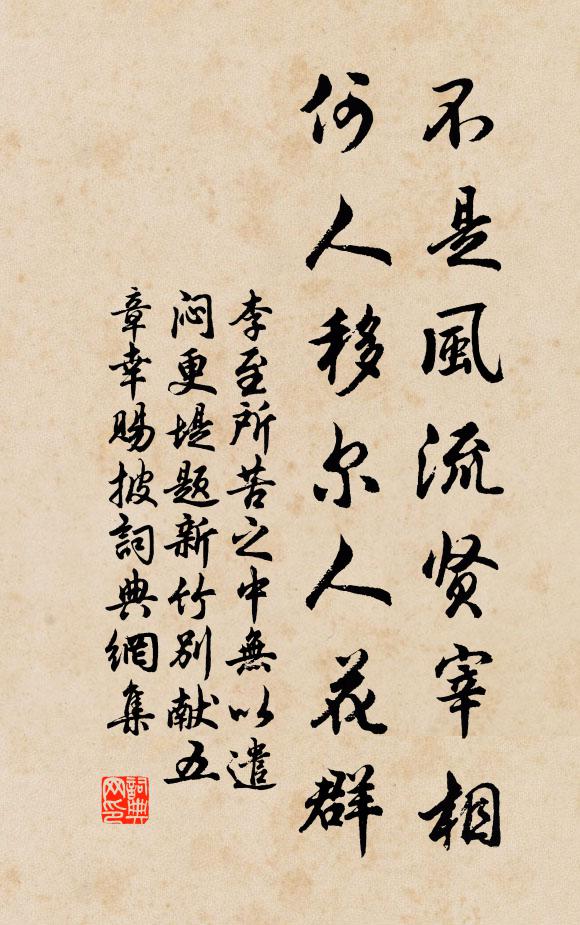 不是風流贤宰相
何人移尔人花群
李至所苦之中無以遣
闷更堤题新竹别献五
章幸賜披詞典網集
詞典网印